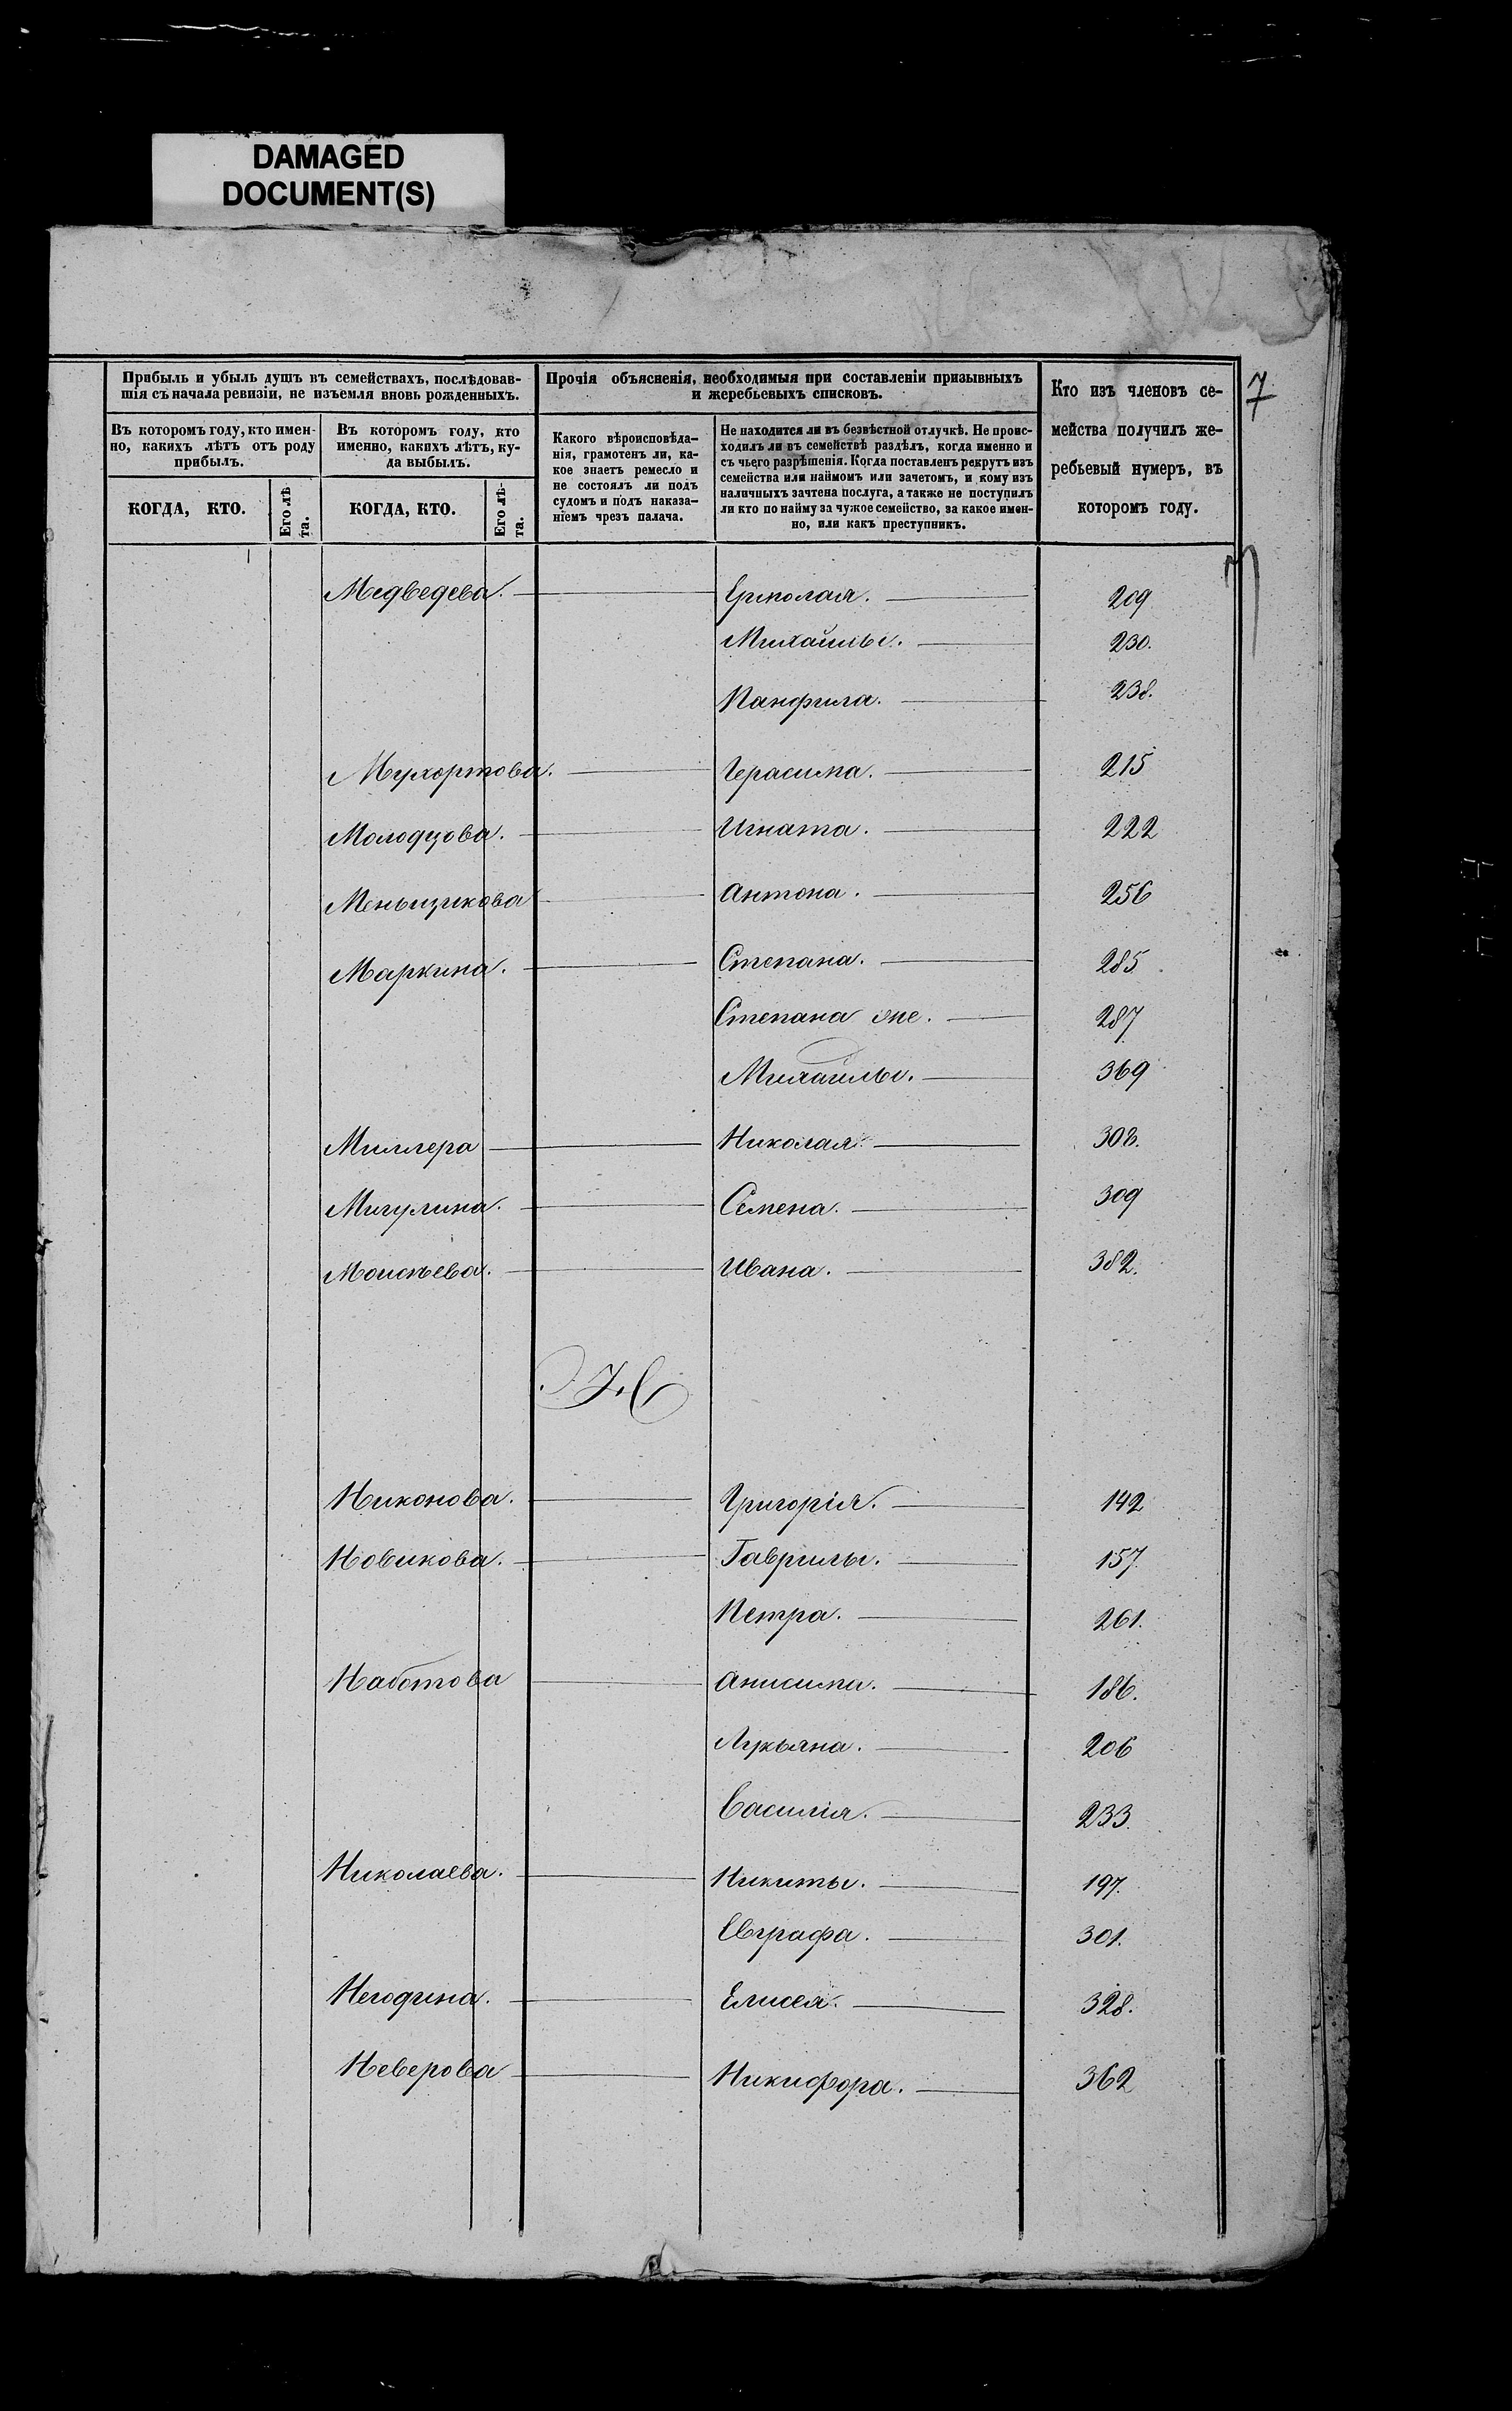 DAMAGED
DOCUMENT(S)
7
Прибыль и убыль душъ въ семействахъ, послѣдовав-
шія съ начала ревизіи, не изъемля вновь рожденныхъ.
Въ которомъ году, кто имен-
но, какихъ лѣтъ отъ роду
прибылъ.
КОГДА, КТО.
Его лѣ-
та.
Въ которомъ году, кто
именно, какихъ лѣтъ, ку-
да выбылъ.
КОГДА, КТО.
Его лѣ-
та.
Прочія объясненія, необходимыя при составленіи призывныхъ
и жеребьевыхъ списковъ.
Какого вѣроисповѣда-
нія, грамотенъ ли, ка-
кое знаетъ ремесло и
не состоялъ ли подъ
судомъ и подъ наказа-
ніемъ чрезъ палача.
Не находится ли въ безвѣстной отлучкѣ. Не проис-
ходилъ ли въ семействѣ раздѣлъ, когда именно и
съ чьего разрѣшенія. Когда поставленъ рекрутъ изъ
семейства или наймомъ или зачетомъ, и кому изъ
наличныхъ зачтена послуга, а также не поступилъ
ли кто по найму за чужое семейство, за какое имен-
но, или какъ преступникъ.
Кто изъ членовъ се-
мейства получилъ же-
ребьевый нумеръ, въ
которомъ году.
Медведева. 209
Михайлы. 230.
Панфила. 238.
Мухортова. Герасима. 215
Молодцова. Игната. 222
Меньщикова Антона. 256
Маркина. Степана. 285
Степана же. 287
Михайлы. 369
Миллера Николая 308.
Мигулина. Семена. 309
Моисѣева. Ивана. 382.
Н
Никонова. Григорія. 142
Новикова. Гаврилы. 157.
Петра. 261.
Наботова Анисима. 186.
Лукьяна. 206
Василія. 233.
Николаева. Никиты. 197.
Евграфа. 301.
Негодина. Елисея. 328.
Неверова Никифора. 362